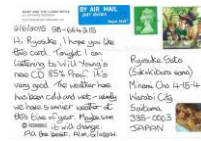 BY AIR MAIL
par avion
Royal Mail
2/6/2015
Hi Ryosuke, I hope you like
this card. Tonight I am
listening to Will Young's
new CD 85% Proof. It's
very good. The weather here
has been cold and wet - usually
we have summer weather at
this time of year. Maybe soon
it will change.
All the best, from,
Ryosuke Sato
Minami Cho 4-15-4
Warabi City
Saitama
335-0003
JAPAN